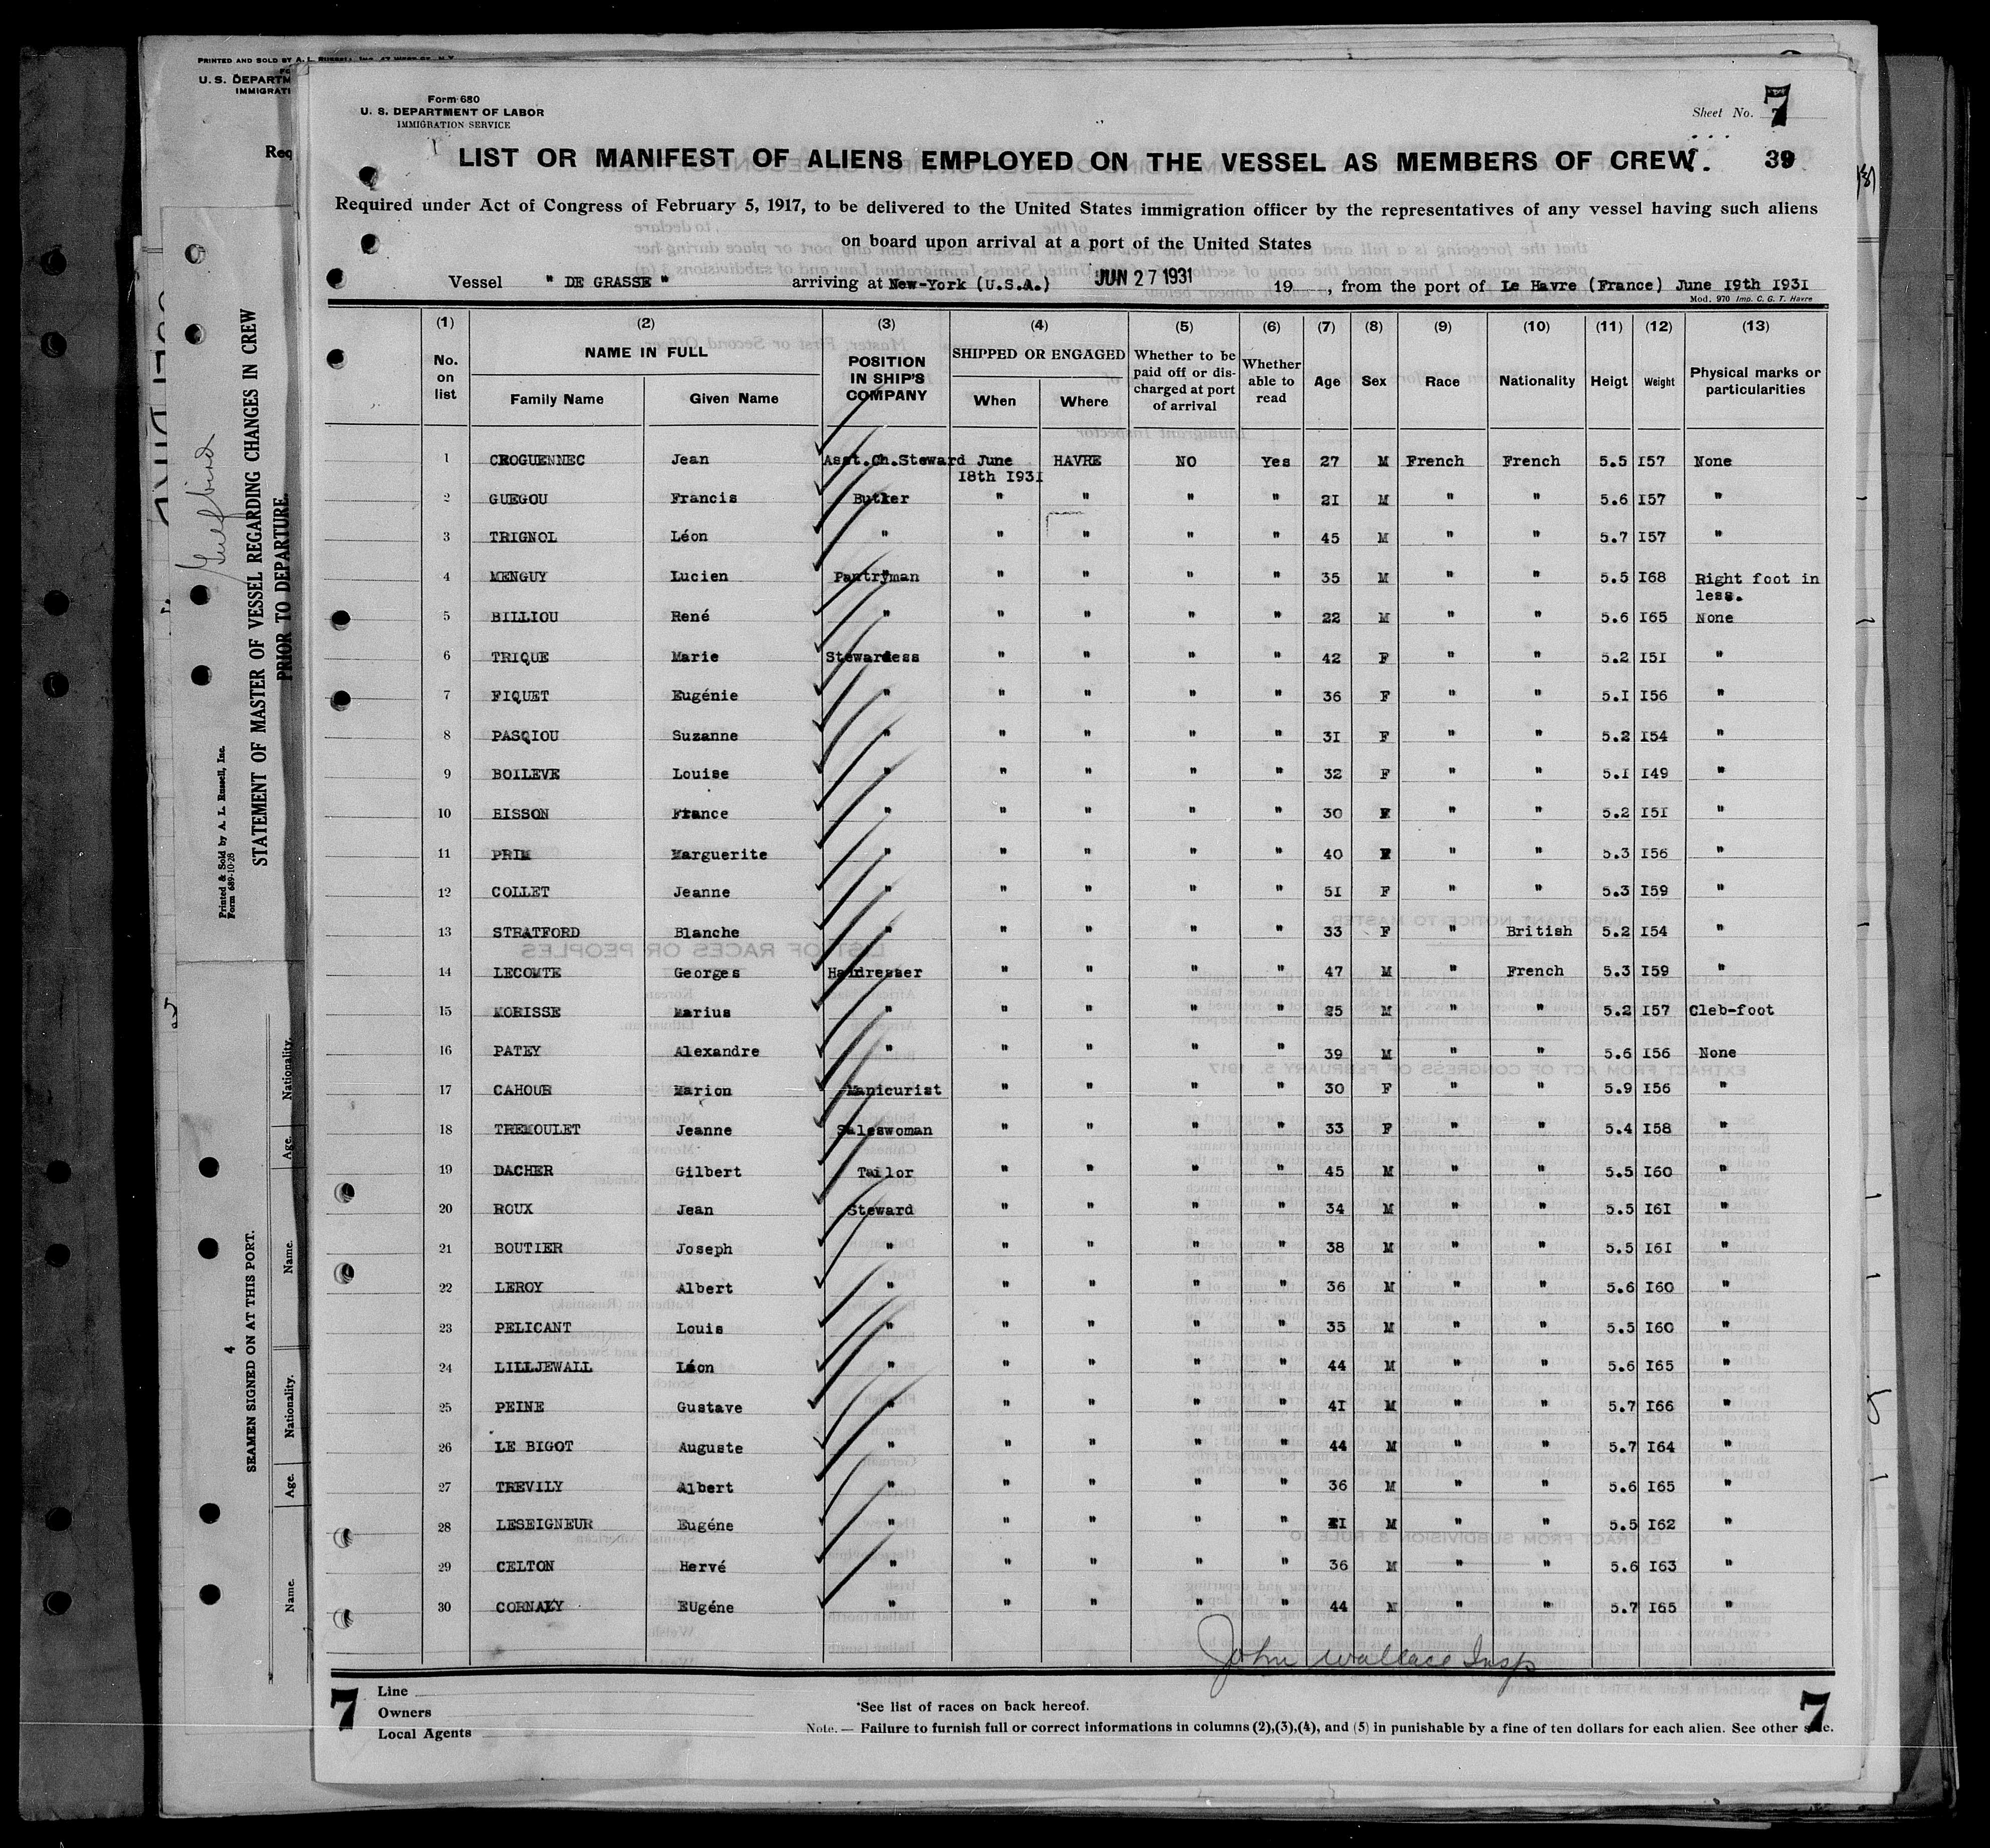 PRINTED AND SOLD BY A. L. RUSSELL, INC.
U. S. DEPARTM
IMMIGRATI
Req
Form 680
U. S. DEPARTMENT OF LABOR
IMMIGRATION SERVICE
Sheet No. 7
LIST OR MANIFEST OF ALIENS EMPLOYED ON THE VESSEL AS MEMBERS OF CREW. 39
Required under Act of Congress of February 5, 1917, to be delivered to the United States immigration officer by the representatives of any vessel having such aliens
on board upon arrival at a port of the United States
Vessel " DE GRASSE " arriving at New-York (U.S.A.) JUN 27 1931 19 , from the port of Le Havre (France) June 19th 1931
Mod. 970 Imp. C. G. T. Havre
(1) (2) (3) (4) (5) (6) (7) (8) (9) (10) (11) (12) (13)
No. on list NAME IN FULL Family Name Given Name POSITION IN SHIP'S COMPANY SHIPPED OR ENGAGED When Where Whether to be paid off or discharged at port of arrival Whether able to read Age Sex Race Nationality Heigt Weight Physical marks or particularities
1 CROGUENNEC Jean Asst.Ch.Steward June 18th 1931 HAVRE NO Yes 27 M French French 5.5 157 None
2 GUEGOU Francis Butler " " " " 21 M " " 5.6 157 "
3 TRIGNOL Léon " " " " " 45 M " " 5.7 157 "
4 MENGUY Lucien Pantryman " " " " 35 M " " 5.5 168 Right foot in less.
5 BILLIOU René " " " " " 22 M " " 5.6 165 None
6 TRIQUE Marie Stewardess " " " " 42 F " " 5.2 151 "
7 FIQUET Eugénie " " " " " 36 F " " 5.1 156 "
8 PASQIOU Suzanne " " " " " 31 F " " 5.2 154 "
9 BOILEVE Louise " " " " " 32 F " " 5.1 149 "
10 BISSON France " " " " " 30 F " " 5.2 151 "
11 PRIM Marguerite " " " " " 40 F " " 5.3 156 "
12 COLLET Jeanne " " " " " 51 F " " 5.3 159 "
13 STRATFORD Blanche " " " " " 33 F " British 5.2 154 "
14 LECOMTE Georges Hairdresser " " " " 47 M " French 5.3 159 "
15 MORISSE Marius " " " " " 25 M " " 5.2 157 Cleb-foot
16 PATEY Alexandre " " " " " 39 M " " 5.6 156 None
17 CAHOUR Marion Manicurist " " " " 30 F " " 5.9 156 "
18 TREMOULET Jeanne Saleswoman " " " " 33 F " " 5.4 158 "
19 DACHER Gilbert Tailor " " " " 45 M " " 5.5 160 "
20 ROUX Jean Steward " " " " 34 M " " 5.5 161 "
21 BOUTIER Joseph " " " " " 38 M " " 5.5 161 "
22 LEROY Albert " " " " " 36 M " " 5.6 160 "
23 PELICANT Louis " " " " " 35 M " " 5.5 160 "
24 LILLJEWALL Léon " " " " " 44 M " " 5.6 165 "
25 PEINE Gustave " " " " " 41 M " " 5.7 166 "
26 LE BIGOT Auguste " " " " " 44 M " " 5.7 164 "
27 TREVILY Albert " " " " " 36 M " " 5.6 165 "
28 LESEIGNEUR Eugéne " " " " " M " " 5.5 162 "
29 CELTON Hervé " " " " " 36 M " " 5.6 163 "
30 EUgéne " " " " " 44 M " " 5.7 165 "
John Wallace Insp
7 Line
Owners
Local Agents
*See list of races on back hereof.
Note. — Failure to furnish full or correct informations in columns (2),(3),(4), and (5) in punishable by a fine of ten dollars for each alien. See other
7
Printed & Sold by A. L. Russell, Inc.
Form 689-10-28
STATEMENT OF MASTER OF VESSEL REGARDING CHANGES IN CREW
PRIOR TO DEPARTURE.
4
SEAMEN SIGNED ON AT THIS PORT.
Name. Age. Nationality. Name. Age. Nationality.